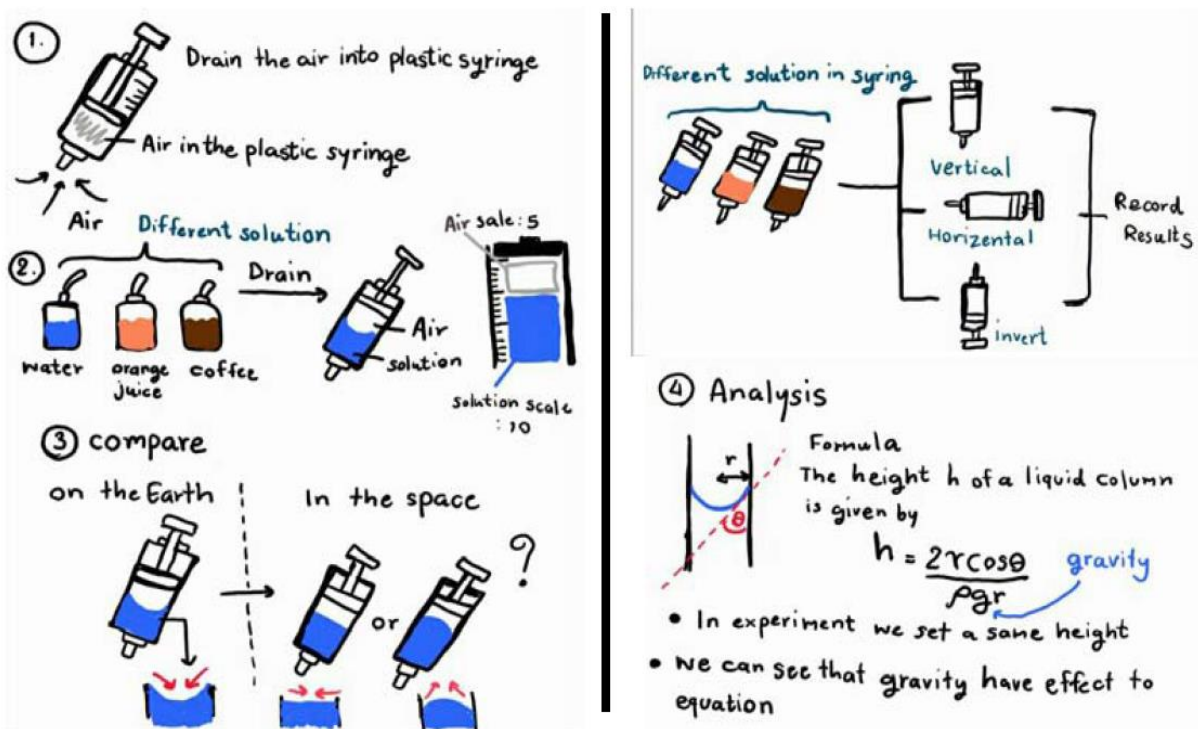 1.
Drain the air into plastic syringe
Air in the plastic syringe
Air
Different solution
2.
Drain
water
orange
juice
coffee
Air
solution
Air sale: 5
solution scale
: 10
3 compare
on the Earth
In the space
?
or
Different solution in syring
vertical
Horizental
invert
Record
Results
4 Analysis
r
θ
Formula
The height h of a liquid column
is given by
h = 2rcosθ
ρgr
gravity
• In experiment we set a same height
• we can see that gravity have effect to
equation